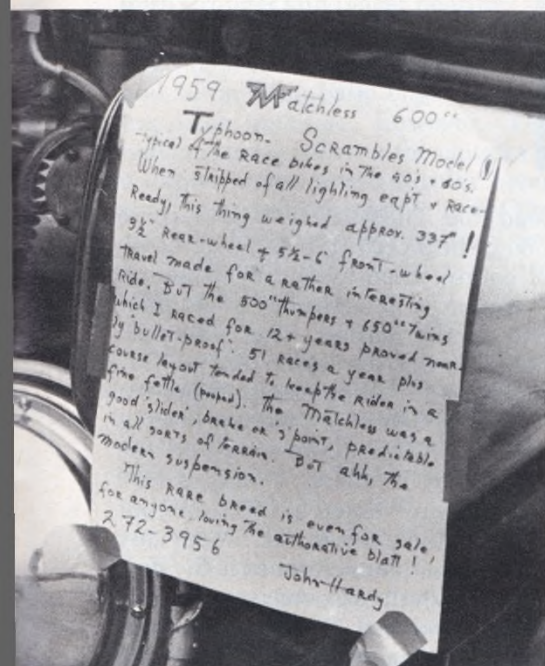 1959 Matchless 600cc
Typhoon. Scrambles Model!
Typical of the Race bikes in the 40s + 60s.
When stripped of all lighting eqpt + Race-
Ready, this thing weighed approx. 337#!
3½" Rear-wheel + 5½-6 front-wheel
travel made for a rather interesting
ride. But the 500cc thumpers + 650cc Twins
which I raced for 12+ years proved near-
ly 'bullet-proof'. 51 races a year plus
course layout tended to keep the rider in a
fine fettle (pooped). The Matchless was a
good 'slider', brake or 's'point, predictable
in all sorts of terrain. But ahh, the
modern suspension.
This rare breed is even for sale,
for anyone loving the authorative blatt!
272-3956
John Hardy